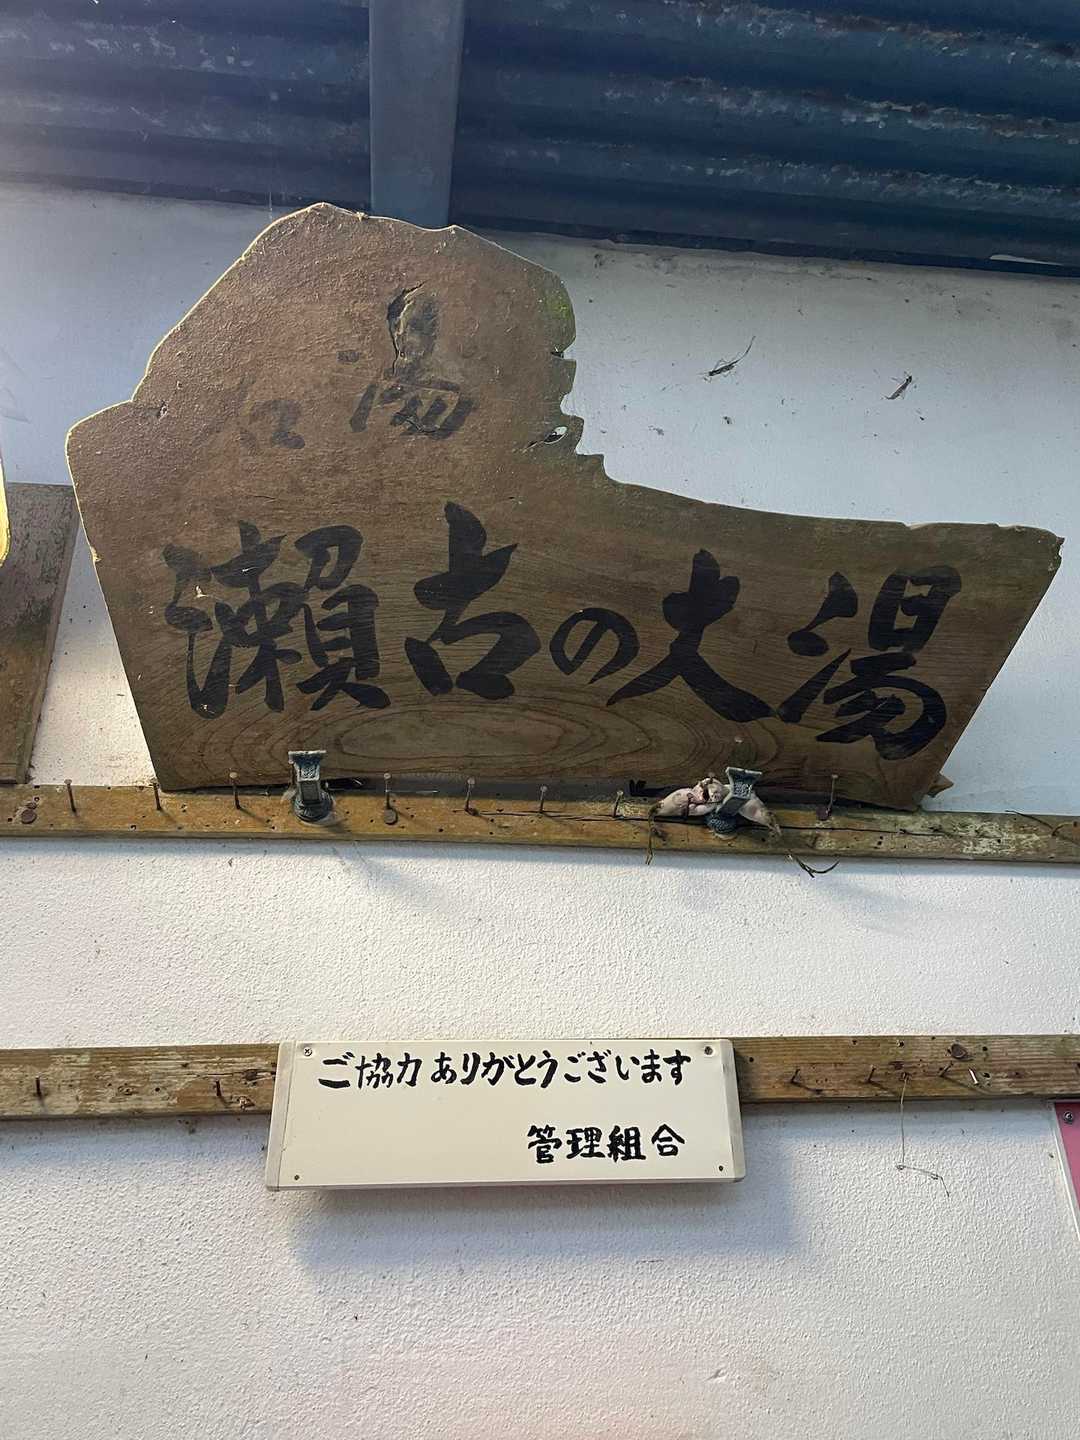 湯
瀬古の大湯
ご協力ありがとうございます
管理組合